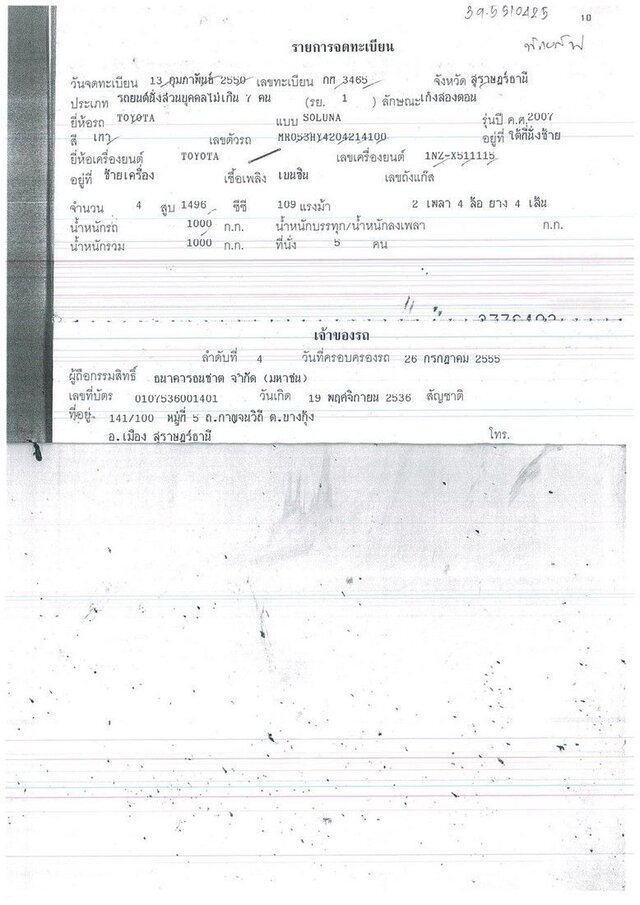 39-5510425
10
รายการจดทะเบียน
วันจดทะเบียน 13 กุมภาพันธ์ 2550 เลขทะเบียน กท 3465 จังหวัด สุราษฎร์ธานี
ประเภท รถยนต์นั่งส่วนบุคคลไม่เกิน 7 คน (รย. 1 ) ลักษณะ เก๋งสองตอน
ยี่ห้อรถ TOYOTA แบบ SOLUNA รุ่นปี ค.ศ. 2007
สี เทา เลขตัวรถ MR053HY4204214100 อยู่ที่ ใต้ที่นั่งซ้าย
ยี่ห้อเครื่องยนต์ TOYOTA เลขเครื่องยนต์ 1NZ-X511115
อยู่ที่ ซ้ายเครื่อง เชื้อเพลิง เบนซิน เลขถังแก๊ส
จำนวน 4 สูบ 1496 ซีซี 109 แรงม้า 2 เพลา 4 ล้อ ยาง 4 เส้น
น้ำหนักรถ 1000 ก.ก. น้ำหนักบรรทุก/น้ำหนักลงเพลา ก.ก.
น้ำหนักรวม 1000 ก.ก. ที่นั่ง 5 คน
เจ้าของรถ
ลำดับที่ 4 วันที่ครอบครองรถ 26 กรกฎาคม 2555
ผู้ถือกรรมสิทธิ์ ธนาคารธนชาต จำกัด (มหาชน)
เลขที่บัตร 0107536001401 วันเกิด 19 พฤศจิกายน 2536 สัญชาติ
ที่อยู่ 141/100 หมู่ที่ 5 ถ.กาญจนวิถี ต.บางกุ้ง
อ.เมือง สุราษฎร์ธานี โทร.